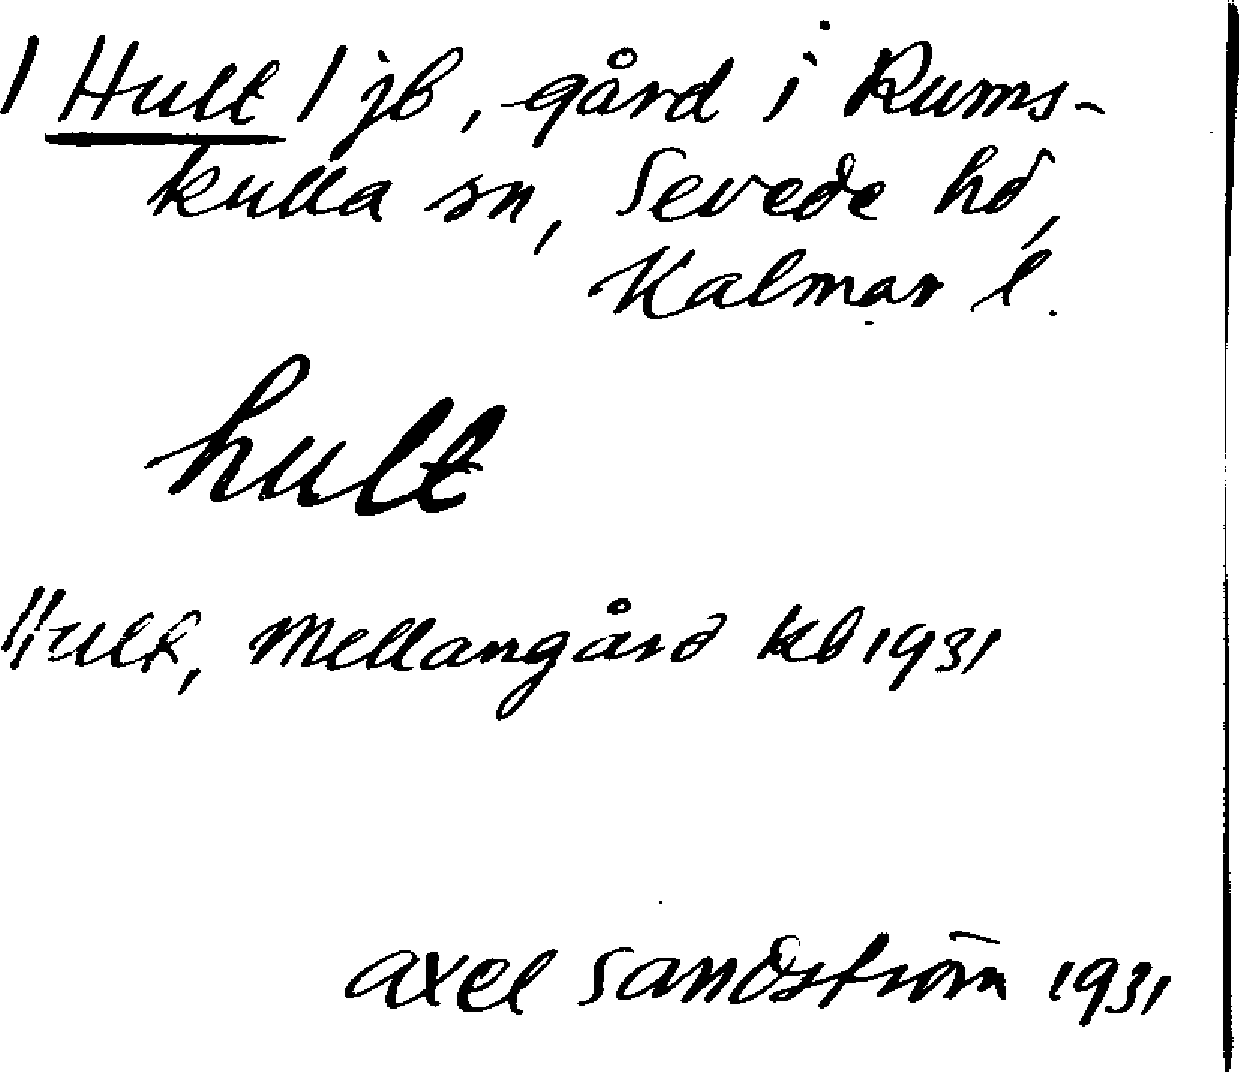 / Hult / jb, gård i Rums-
kulla sn, Sevede hd,
Kalmar l.
hult
Hult, Mellangård kb 1931
Axel Sandström 1931